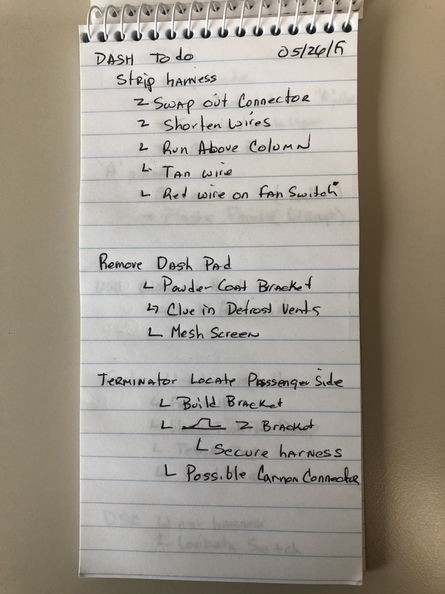 DASH To do 05/26/
Strip harness
Swap out Connector
Shorten wires
Run Above Column
Tan wire
Red wire on Fan Switch
Remove Dash Pad
Powder Coat Bracket
Clue in Defrost Vents
Mesh Screen
Terminator Locate Passenger Side
Build Bracket
Z Bracket
Secure harness
Possible Cannon Connector